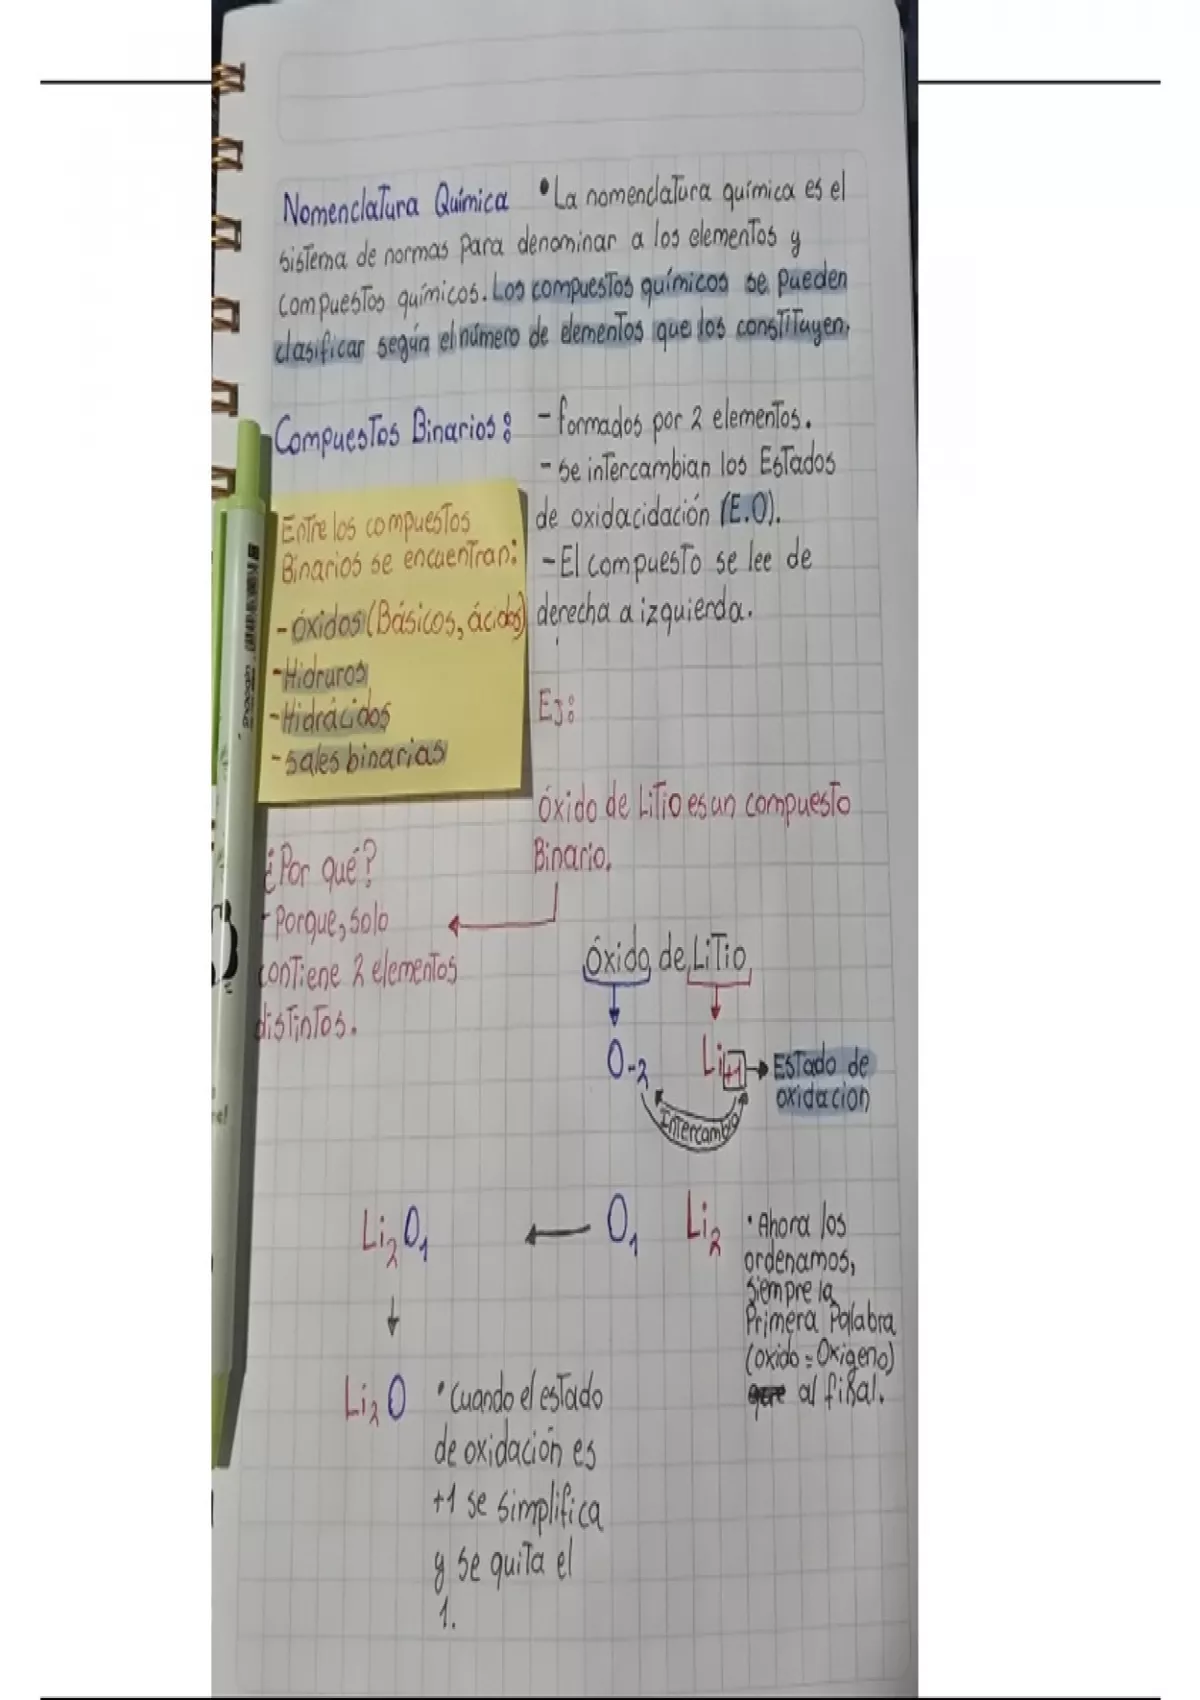 Nomenclatura Química • La nomenclatura química es el
sistema de normas para denominar a los elementos y
compuestos químicos. Los compuestos químicos se pueden
clasificar según el número de elementos que los constituyen.
Compuestos Binarios: - formados por 2 elementos.
- se intercambian los Estados
de oxidacidación (E.O).
- El compuesto se lee de
derecha a izquierda.
Entre los compuestos
Binarios se encuentran:
- óxidos (Básicos, ácidos)
- Hidruros
- Hidrácidos
- sales binarias
Ej:
óxido de Litio es un compuesto
Binario.
¿Por qué?
- Porque, solo
contiene 2 elementos
distintos.
óxido de Litio
O-2 Li+1 → Estado de
oxidacion
Intercambio
Li2O1 ← O1 Li2
• Ahora los
ordenamos,
siempre la
Primera Palabra
(oxido = Oxigeno)
al final.
↓
Li2O
• Cuando el estado
de oxidación es
+1 se simplifica
y se quita el
1.